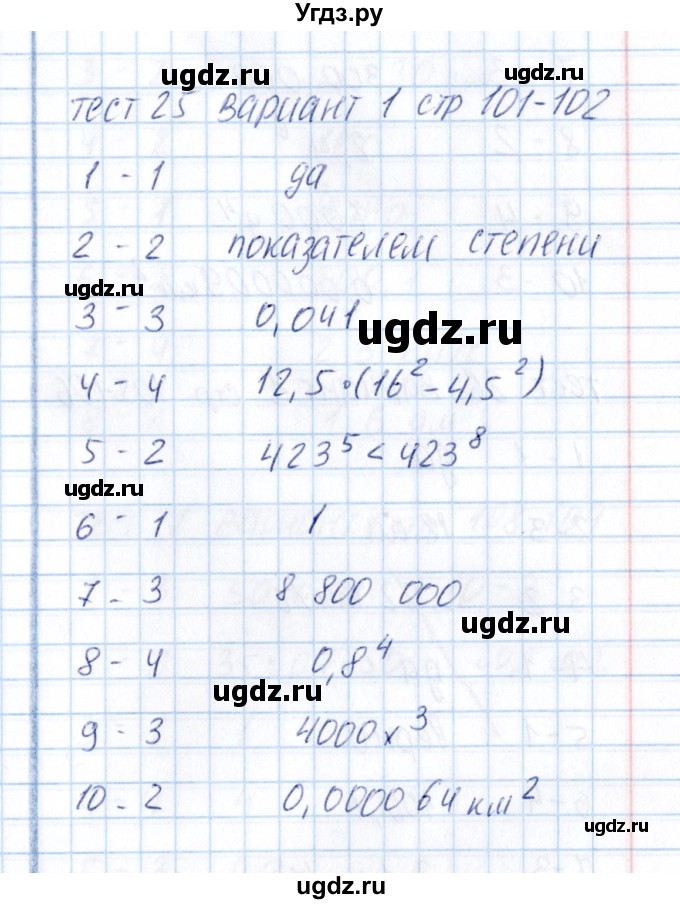 Угдз.ру
ugdz.ru
тест 25 вариант 1 стр 101-102
1 - 1 да
2 - 2 показателем степени
ugdz.ru
3 - 3 0,041
ugdz.ru
4 - 4 12,5•(16² - 4,5²)
5 - 2 423⁵ < 423⁸
ugdz.ru
6 - 1 1
7 - 3 8 800 000
ugdz.ru
8 - 4 0,8⁴
ugdz.ru
9 - 3 4000x³
10 - 2 0,000064 км²
ugdz.ru
ugdz.ru